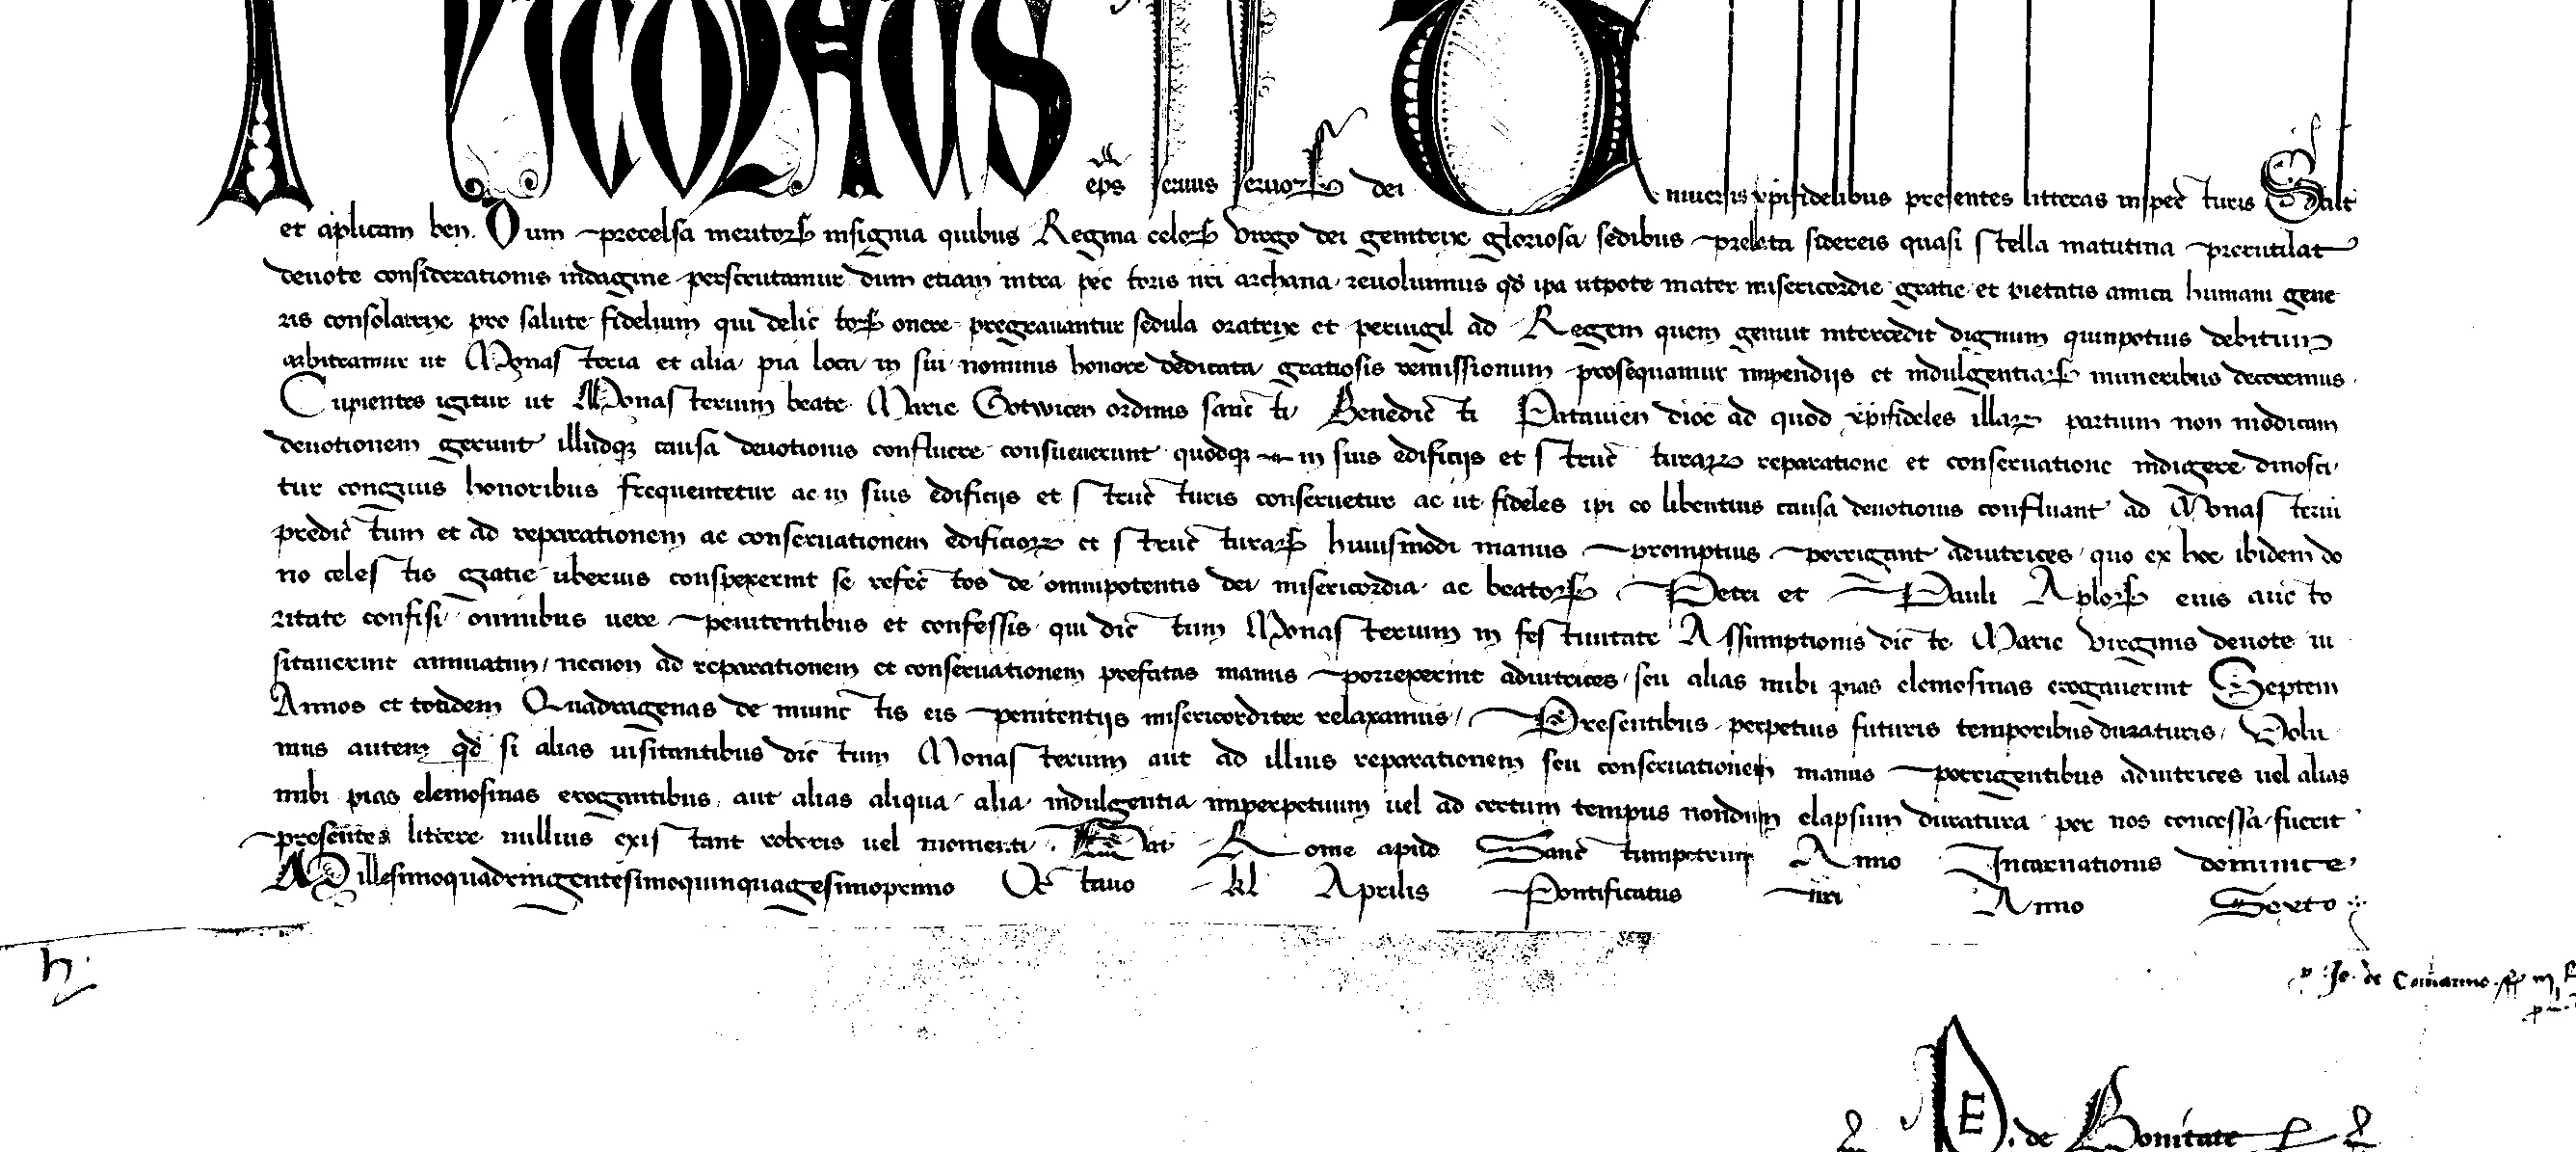 NICOLAUS eps seruus seruoꝝ dei Uniuersis xpifidelibus presentes litteras inspecturis Salt
et aplicam ben. Dum precelsa meritoꝝ insignia quibus Regina celoꝝ virgo dei genitrix gloriosa sedibus prelata sidereis quasi stella matutina prerutilat
deuote considerationis indagine perscrutamur dum etiam intra pectoris nri archana reuoluimus qd ipa utpote mater misericordie gratie et pietatis amica humani gene
ris consolatrix pro salute fidelium qui delictoꝝ onere pregrauantur sedula oratrix et peruigil ad Regem quem genuit intercedit dignum quinpotius debitum
arbitramur ut Monasteria et alia pia loca in sui nominis honore dedicata gratiosis remissionum prosequamur impendijs et indulgentiaꝝ muneribus decoremus.
Cupientes igitur ut Monasterium beate Marie Gotwicen ordinis sancti Benedicti Patauien dioc ad quod xpifideles illaꝝ partium non modicam
deuotionem gerunt illudqꝫ causa deuotionis confluere consueuerunt quodqꝫ in suis edificijs et structuraꝝ reparatione et conseruatione indigere dinosci
tur congruis honoribus frequentetur ac in suis edificijs et structuris conseruetur ac ut fideles ipi eo libentius causa deuotionis confluant ad Monasteriu
predictum et ad reparationem ac conseruationem edificioꝝ et structuraꝝ huiusmodi manus promptius porrigant adiutrices quo ex hoc ibidem do
no celestis gratie uberius conspexerint se refectos de omnipotentis dei misericordia ac beatoꝝ Petri et Pauli Aploꝝ eius aucto
ritate confisi omnibus uere penitentibus et confessis qui dictum Monasterium in festiuitate Assumptionis dicte Marie virginis deuote ui
sitauerint annuatim, necnon ad reparationem et conseruationem prefatas manus porrexerint adiutrices, seu alias inibi pias elemosinas erogauerint Septem
Annos et totidem Quadragenas de iniunctis eis penitentijs misericorditer relaxamus, Presentibus perpetuis futuris temporibus duraturis, Volu
mus autem qd si alias uisitantibus dictum Monasterium aut ad illius reparationem seu conseruationem manus porrigentibus adiutrices uel alias
inibi pias elemosinas erogantibus, aut alias aliqua alia indulgentia imperpetuum uel ad certum tempus nondum elapsum duratura per nos concessa fuerit
presentes littere nullius existant roboris uel momenti. Dat Rome apud Sanctumpetrum Anno Incarnationis dominice
Millesimoquadringentesimoquinquagesimoprimo Octauo kl Aprilis Pontificatus nri Anno Sexto
h.
Jo. de Comarino
de Bonitate